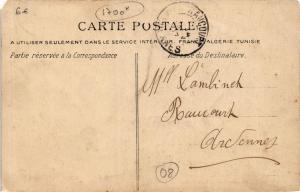 6€
1700*
CARTE POSTALE
A UTILISER SEULEMENT DANS LE SERVICE INTERIEUR, FRANCE, ALGERIE TUNISIE
Partie réservée à la Correspondance
Adresse du Destinataire.
RAUCOURT
Lambinet
Raucourt
Ardennes
08